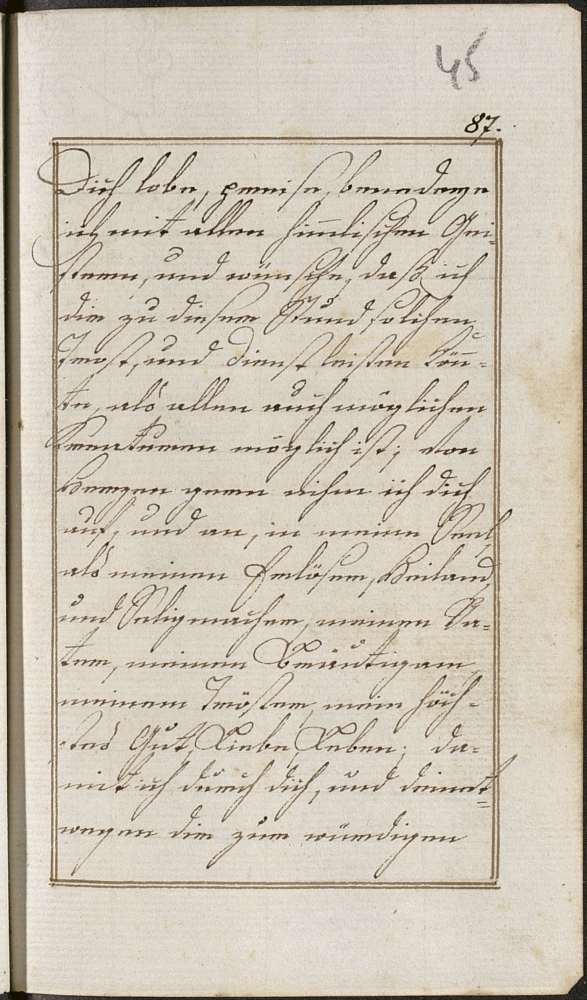 45
87.
Dich lobe, preise, benedeye
ich mit allen himlischen Gei-
stern, und wünsche, daß ich
dir zu dieser Stund solchen
Trost, und Dienst leisten kön-
te, als allen auch möglichen
Kreaturen möglich ist; von
Herzen gern nihm ich dich
auf, und an, in meine Seel
als meinen Erlöser, Heiland,
und Seligmacher, meinen Va-
ter, meinen Bräutigam,
meinem Tröster, mein höch-
stes Gut, Liebe, Leben; da-
mit ich durch dich, und deinet-
wegen dir zum würdigen